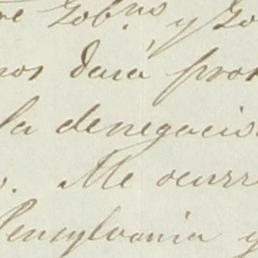 re Gob.nos y Go
nos dará pro
la denegació
. Me ocurr
Pensylvania y